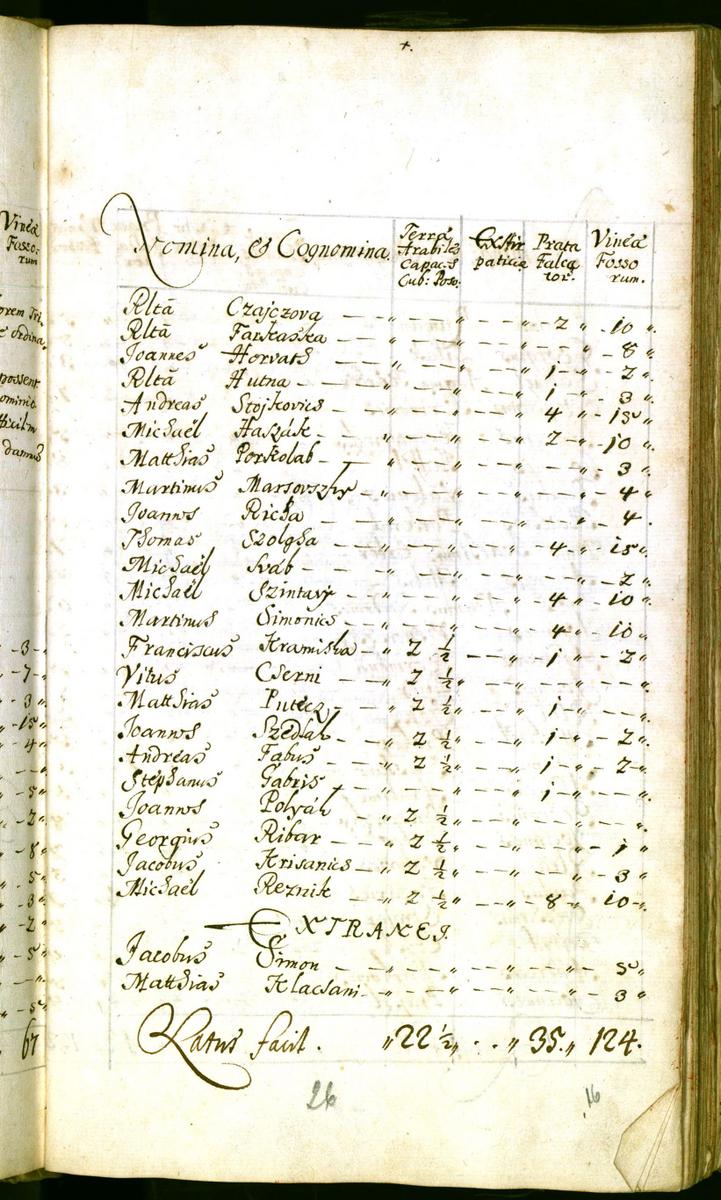 Vineæ
Fosso:
rum
orem Tri,
e ordina,
possent
omini.
damus
-3-
-7-
3
-15
-4
-5
-2
-8
5
-3
-2
-5
-5
67
4.
Nomina, & Cognomina. Terræ Arabiles Capac:s Cub: Poso: Exstirpaticiæ Prata Falcator: Vineæ Fossorum.
Rltã Czajczova — — „ — — „ — 2 „ - 10 „
Rltã Farkaska — — „ — — „ — — „ - 8 „
Joannes Horvats — — „ — — „ — 1 - „ - 2 „
Rltã Hutna — — „ — — „ — 1 - „ - 3 „
Andreas Stojkovics — — „ — — „ — 4 - „ - 15 „
Michaël Haszák — — „ — — „ — 2 - „ - 10 „
Matthias Porkolab — — „ — — „ — — „ - 3 „
Martinus Marsovszky — — „ — — „ — — „ - 4 „
Joannes Richa — — „ — — „ — — „ - 4 .
Thomas Szolgha — — „ — — „ — 4 - „ - 15 „
Michaël Sváb — — „ — — „ — — „ - 2 „
Michaël Szintavy — — „ — — „ — 4 - „ - 10 „
Martinus Simonics — — „ — — „ — 4 - „ - 10 „
Franciscus Kramisha — „ 2 ½ — — „ - 1 - „ - 2 „
Vitus Cserni — „ 2 ½ „ — — „ — — „ — „
Matthias Putecz — „ 2 ½ „ — — „ - 1 - „ — „
Joannes Szedlak — „ 2 ½ „ — — „ - 1 - „ - 2 „
Andreas Fabus — „ 2 ½ „ — — „ - 1 - „ - 2 - „
Stephanus Gabris — — „ — — „ - 1 - „ — „
Joannes Polyák — „ 2 ½ „ — — „ — — „ — „
Georgius Ribar — „ 2 ½ „ — — „ — — „ - 1 „
Jacobus Krisanics — „ 2 ½ „ — — „ — — „ - 3 „
Michaël Reznik — „ 2 ½ „ — — „ - 8 - „ 10 - „
EXTRANEI.
Jacobus Simon — — „ — — „ — — „ - 5 „
Matthias Klacsani — — „ — — „ — — „ - 3 „
Latus facit. „ 22 ½ „ . . „ 35. „ 124.
26 16